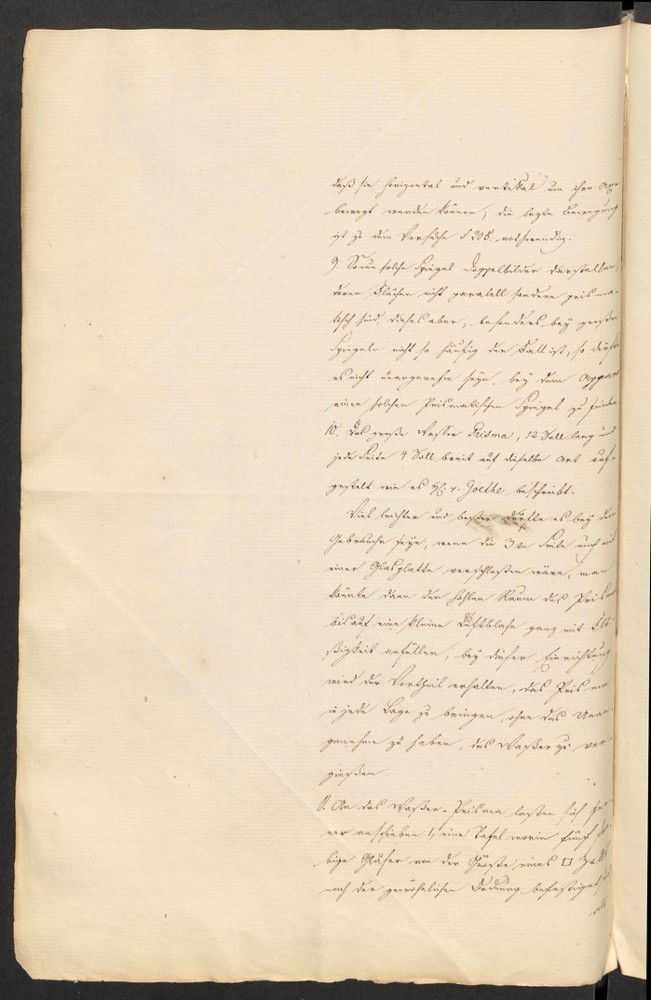 daß sie horizontal und vertikal um ihre Axe
bewegt werden können, die lezte Bewegung
ist zu dem Versuche § 208. nothwendig.
9. solche Spiegel Doppelbilder darstellen
deren Flächen nicht paralell sondern prisma-
tisch sind, dieses aber, besonders bey großen
Spiegeln nicht so häufig der Fall ist, so dürfte
es nicht unangenehm seyn, bey dem
einen solchen Prismatischen Spiegel zu finden
10. Das große Wasser Prisma, 12 Zoll lang und
jede Seite 4 Zoll breit auf dieselbe Art auf-
gestelt wie es H: v. Goethe beschreibt.
Viel leichter und besser dürfte es bey dem
Gebrauche seyn, wenn die 3te Seite auch mit
einer Glasplatte verschloßen wäre, man
könnte dann den hohlen Raum des
bis auf eine kleine Luftblase ganz mit
anfüllen, bey dieser Einrichtung
wird der Vortheil erhalten, das Prisma
in jede Lage zu bringen, ohne das Unan-
genehme zu haben, das Waßer zu ver-
gießen.
11. An das Waßer-Prisma laßen sich
anschieben 1, eine Tafel worin fünf
bige Gläser von der Größe eines □
nach der gewöhnlichen Ordnung befestiget